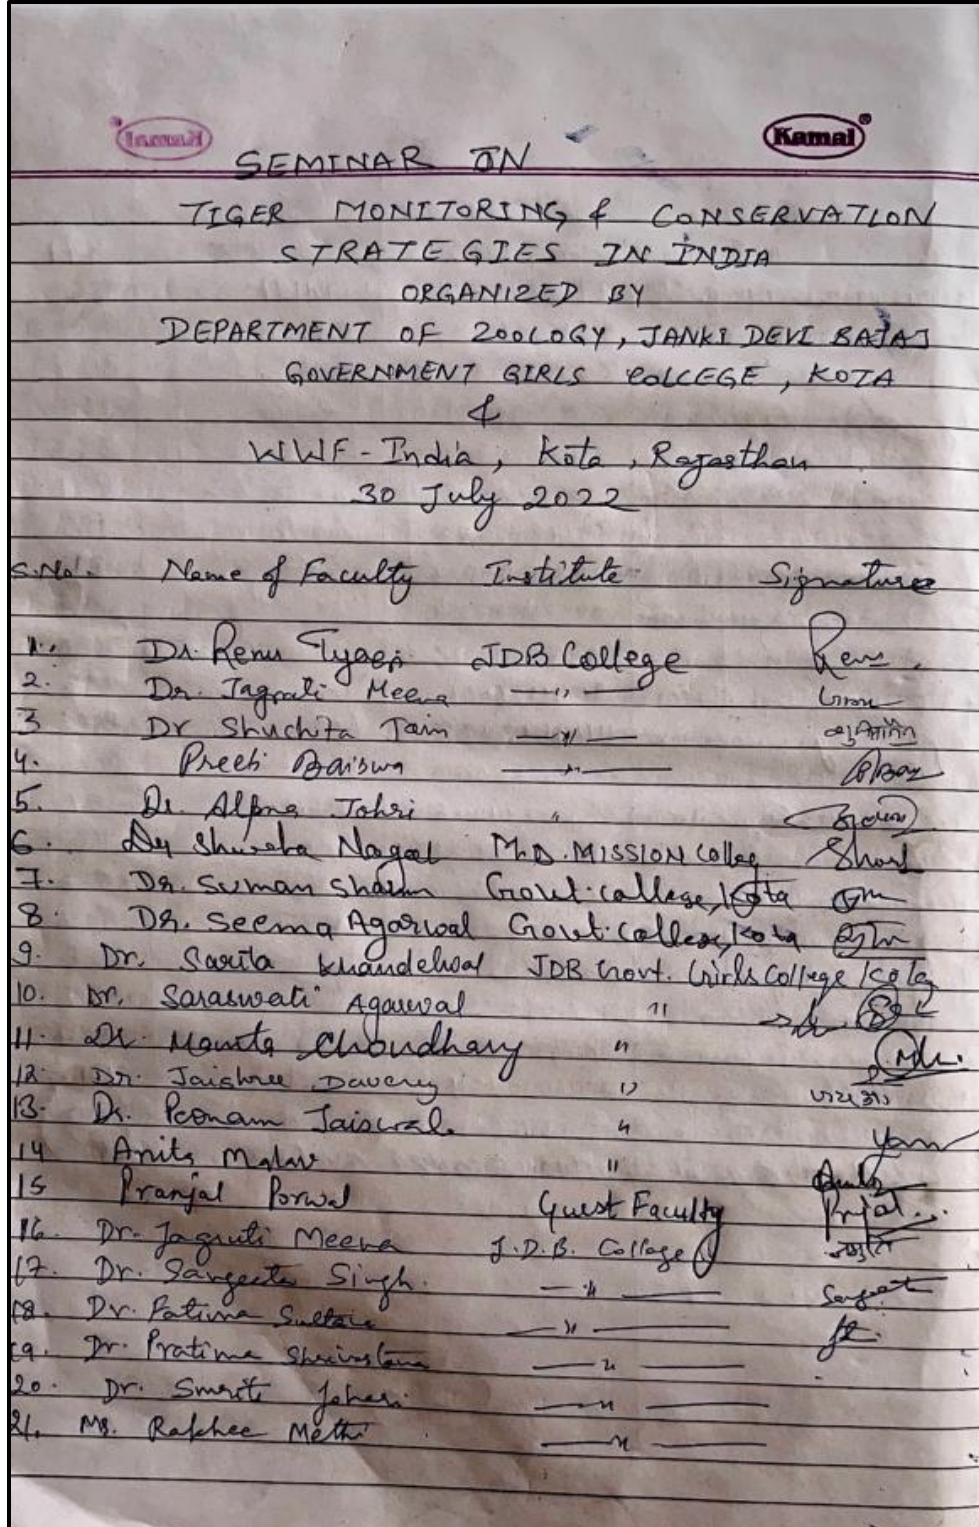 Kamal
SEMINAR ON
TIGER MONITORING & CONSERVATION
STRATEGIES IN INDIA
ORGANIZED BY
DEPARTMENT OF ZOOLOGY, JANKI DEVI BAJAJ
GOVERNMENT GIRLS COLLEGE, KOTA
&
WWF-India, Kota, Rajasthan
30 July 2022
S.No. Name of Faculty Institute Signature
1. Dr. Renu Tyagi JDB College Renu
2. Dr. Jagrati Meena —"—
3 Dr Shuchita Jain —"—
4. Preeti Bairwa —"—
5. Dr. Alpna Johri "
6. Nagal M.D. MISSION College
7. Dr. Suman Sharma Govt. College, Kota
8. Dr. Seema Agarwal Govt. College, Kota
9. Dr. Sarita Khandelwal JDB Govt. Girls College Kota
10. Dr. Saraswati Agarwal "
11. Dr. Mamta Choudhary "
12. Dr. Jaishree "
13. Dr. Poonam Jaiswal "
14 Anita Malav "
15 Pranjal Porwal Guest Faculty
16. Dr. Jagruti Meena J.D.B. College
17. Dr. Sangeeta Singh. —"— Sangeeta
18. Dr. Fatima Sultana —"—
19. Dr. Pratima Shrivastava —"—
20. Dr. Smriti Johari —"—
21. Ms. Rakhee Methi —"—